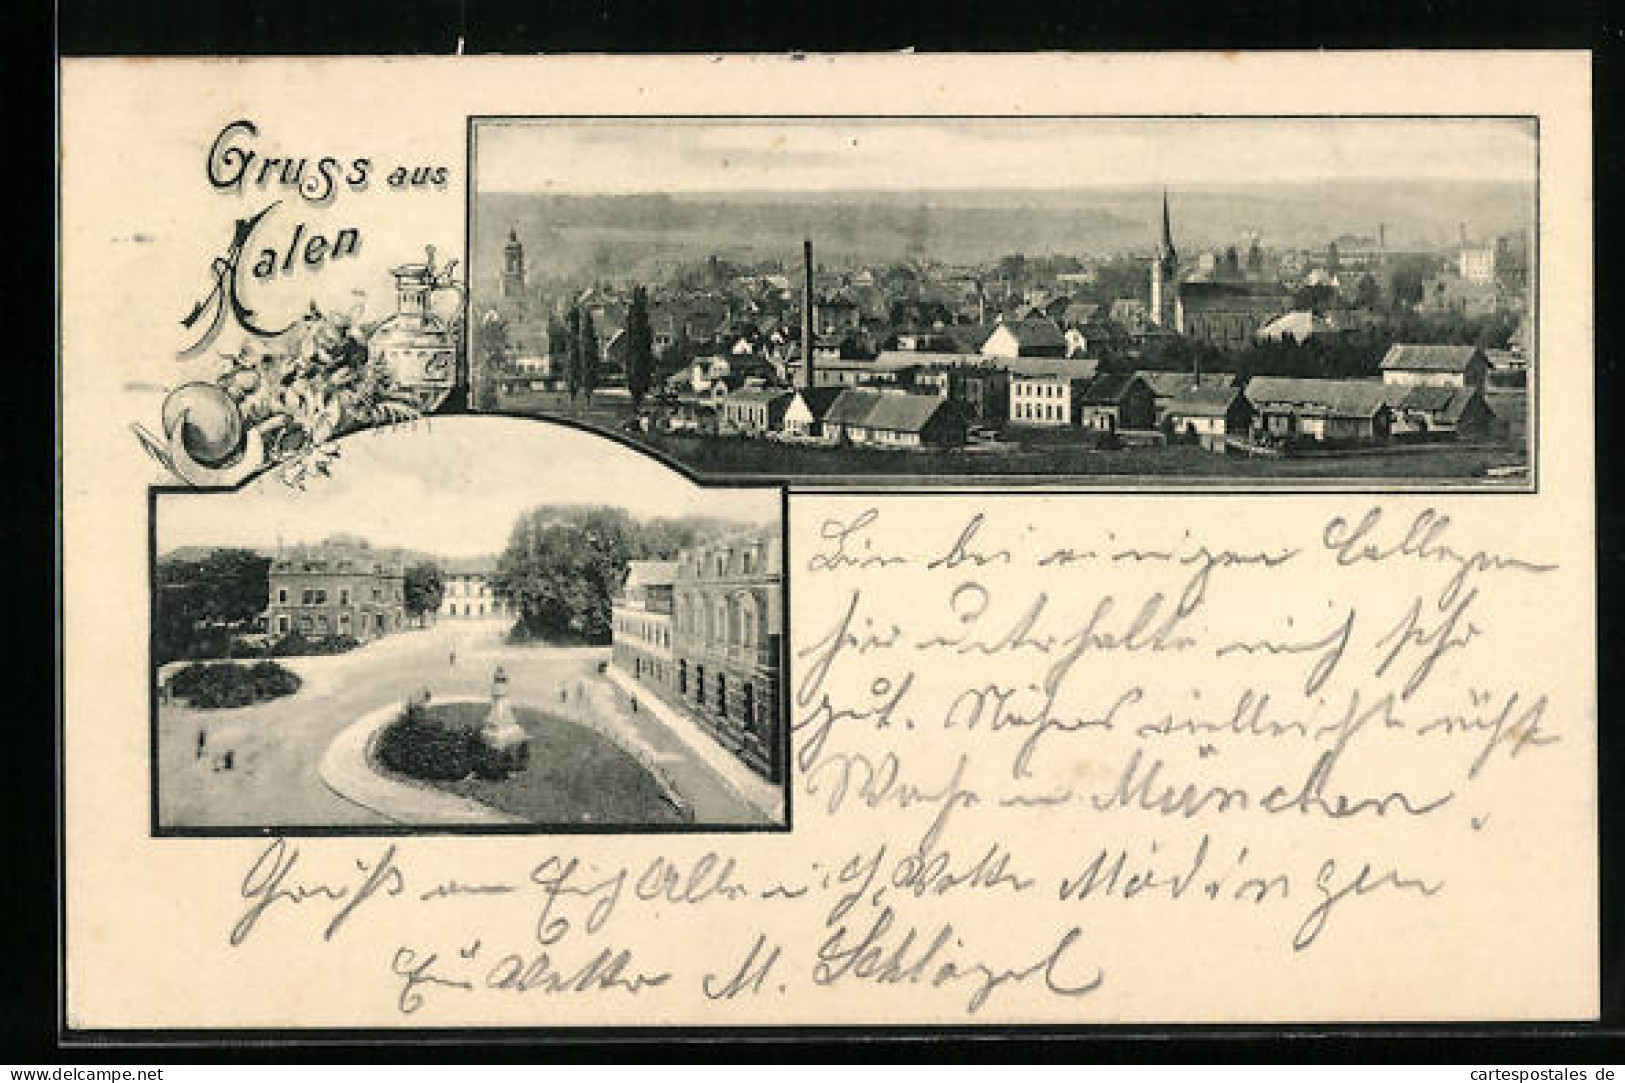 Gruss aus
Aalen
Bin bei einigen Collegen
hier unterhalte mich sehr
gut. Näheres vielleicht nächste
Woche in München.
Gruß an Euch Alle u. Vetter
Euer Vetter M. Schlögel
www.delcampe.net
cartespostales de